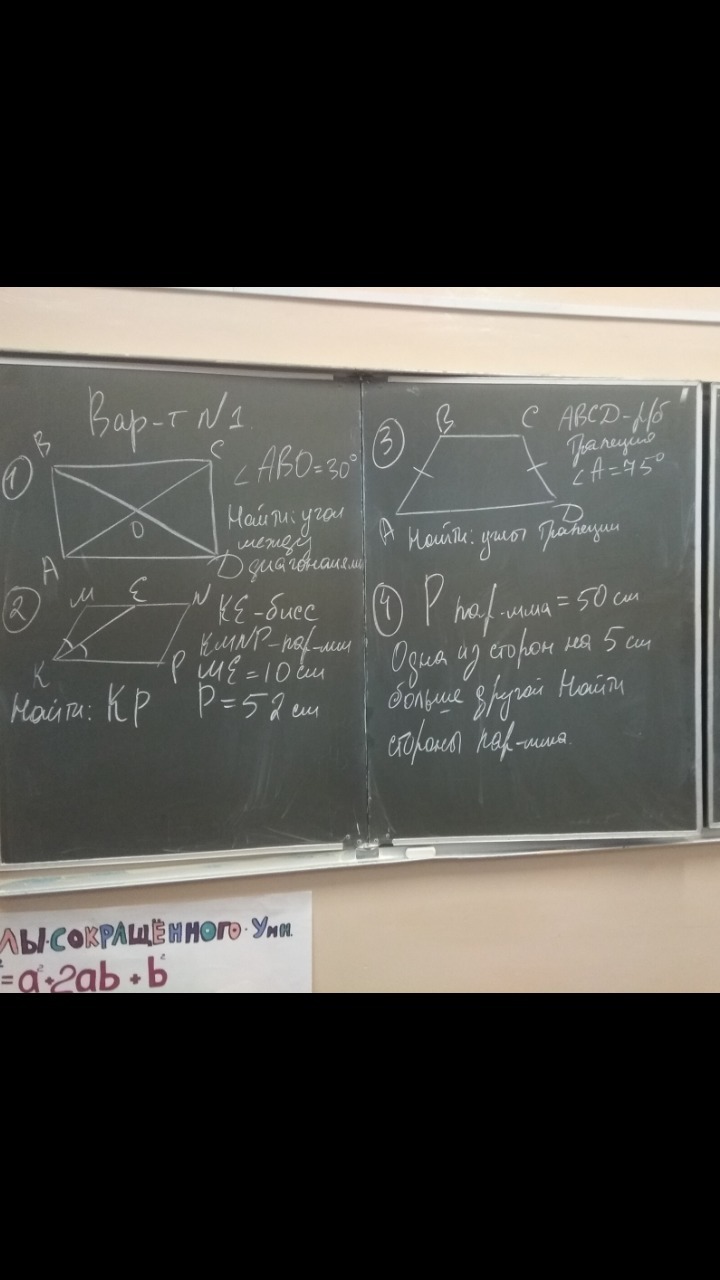 Вар-т N1.
1
B
C
∠ABO=30°
O
Найти: угол
между
диагоналями
A
D
2
M
E
N
KE-бисс
KMNP-пар-мм
K
P
ME=10 см
Найти: KP
P=52 см
3
B
C
ABCD-р/б
трапеция
∠A=75°
A
D
Найти: углы трапеции
4
P пар-мма=50 см
Одна из сторон на 5 см
больше другой Найти
стороны пар-мма.
ЛЫ·СОКРАЩЁННОГО·УМН.
²=a²+2ab+b²